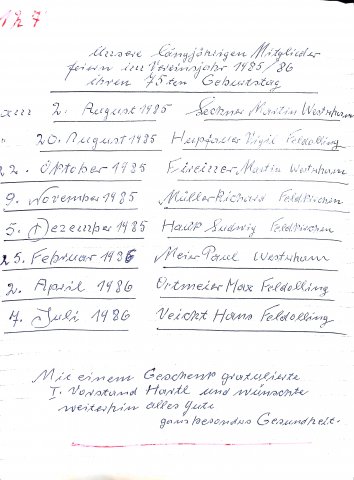 Unsere längjährigen Mitglieder
feiern im Vereinsjahr 1985/86
ihren 75ten Geburtstag
am 2. August 1985 Lechner Martin Westerham
" 20. August 1985 Hupfauer Vigil Feldolling
22. Oktober 1985 Martin Westerham
9. November 1985 Müller Richard Feldkirchen
5. Dezember 1985 Hauk Ludwig Feldkirchen
25. Februar 1986 Meier Paul Westerham
2. April 1986 Ortmeier Max Feldolling
7. Juli 1986 Veicht Hans Feldolling
Mit einem Geschenk gratulierte
I. Vorstand Hartl und wünschte
weiterhin alles gute
ganz besonders Gesundheit.